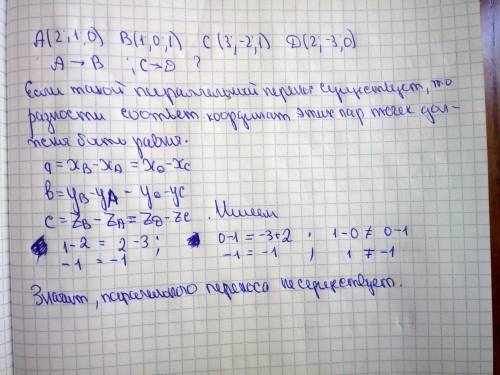 A(2;1;0) B(1,0,1) C(3;-2;1) D(2;-3;0)
A→B ; C→D ?
Если такой параллельный перенос существует, то
разности соответ координат этих пар точек дол-
жны быть равны.
a = xB-xA = xD-xC
b = yB-yA = yD-yC
c = zB-zA = zD-zC . Имеем
1-2 = 2-3; 0-1 = -3+2 ; 1-0 ≠ 0-1
-1 = -1 -1 = -1 ; 1 ≠ -1
Значит, параллельного переноса не существует.